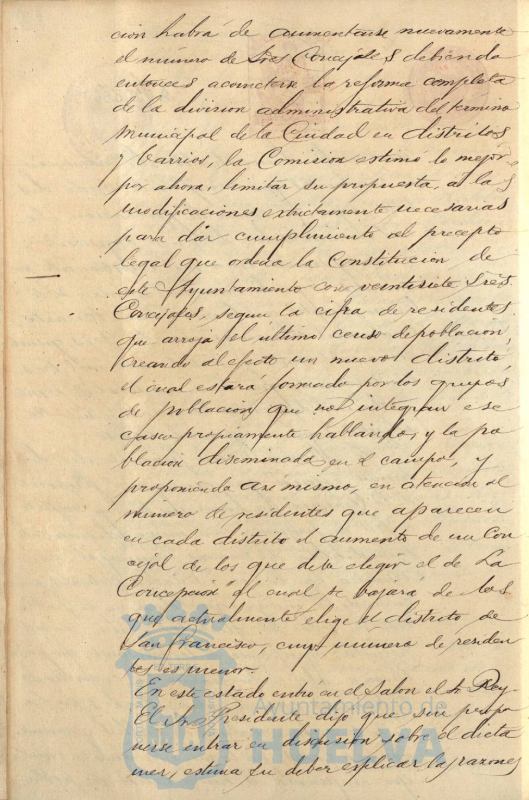 cion habrá de aumentarse nuevamente
el número de Sres Concejales debiendo
entonces acometerse la reforma completa
de la division administrativa del termino
municipal de la Ciudad en distritos
y barrios, la Comision estima lo mejor
por ahora, limitar su propuesta, a las
modificaciones extrictamente necesarias
para dar cumplimiento al precepto
legal que ordena la Constitucion de
este Ayuntamiento con veintisiete Sres.
Concejales, segun la cifra de residentes
que arroja el último censo de poblacion,
creando al efecto un nuevo distrito,
el cual estará formado por los grupos
de poblacion que no integran ese
casco propiamente hablando, y la po
blacion diseminada en el campo, y
proponiendo asi mismo, en atencion al
numero de residentes que aparecen
en cada distrito el aumento de un Con
cejal de los que debe elegir el de La
Concepcion" el cual se bajará de los
que actualmente elige el distrito de
San Francisco, cuyo número de residen
tes es menor.
En este estado entró en el Salon el Sr Rey
El Sr Presidente dijo que sin propo
nerse entrar en discusion sobre el dicta
men, estima su deber explicar las razones
Ayuntamiento de
HUELVA